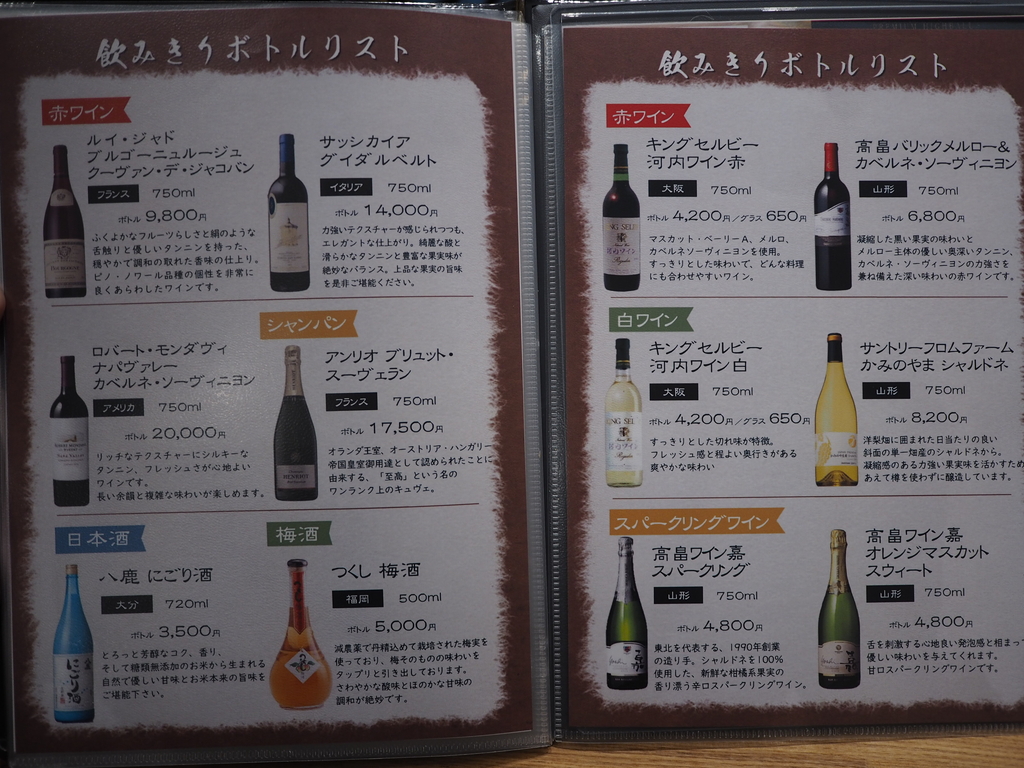 飲みきりボトルリスト
赤ワイン
ルイ・ジャド
ブルゴーニュルージュ
クーヴァン・デ・ジャコバン
フランス 750ml
ボトル 9,800円
ふくよかなフルーツらしさと絹のような
舌触りと優しいタンニンを持った、
穏やかで調和の取れた香味の仕上り。
ピノ・ノワール品種の個性を非常に
良くあらわしたワインです。
サッシカイア
グイダルベルト
イタリア 750ml
ボトル 14,000円
力強いテクスチャーが感じられつつも、
エレガントな仕上がり。綺麗な酸と
滑らかなタンニンと豊富な果実味が
絶妙なバランス。上品な果実の旨味
を是非ご堪能ください。
ロバート・モンダヴィ
ナパヴァレー
カベルネ・ソーヴィニヨン
アメリカ 750ml
ボトル 20,000円
リッチなテクスチャーにシルキーな
タンニン、フレッシュさが心地よい
ワインです。
長い余韻と複雑な味わいが楽しめます。
シャンパン
アンリオ ブリュット・
スーヴェラン
フランス 750ml
ボトル 17,500円
オランダ王室、オーストリア・ハンガリー
帝国皇室御用達として認められたことに
由来する、「至高」という名の
ワンランク上のキュヴェ。
日本酒
八鹿 にごり酒
大分 720ml
ボトル 3,500円
とろっと芳醇なコク、香り、
そして糖類無添加のお米から生まれる
自然で優しい甘味とお米本来の旨味を
ご堪能下さい。
にごり酒
梅酒
つくし 梅酒
福岡 500ml
ボトル 5,000円
減農薬で丹精込めて栽培された梅実を
使っており、梅そのものの味わいを
タップリと引き出しております。
さわやかな酸味とほのかな甘味の
調和が絶妙です。
飲みきりボトルリスト
赤ワイン
キングセルビー
河内ワイン赤
大阪 750ml
ボトル 4,200円/グラス 650円
マスカット・ベーリーA、メルロ、
カベルネソーヴィニヨンを使用。
すっきりとした味わいで、どんな料理
にも合わせやすいワイン。
高畠バリックメルロー&
カベルネ・ソーヴィニヨン
山形 750ml
ボトル 6,800円
凝縮した黒い果実の味わいと
メルロー主体の優しい奥深いタンニン、
カベルネ・ソーヴィニヨンの力強さを
兼ね備えた深い味わいの赤ワインです。
白ワイン
キングセルビー
河内ワイン白
大阪 750ml
ボトル 4,200円/グラス 650円
すっきりとした切れ味が特徴。
フレッシュ感と程よい奥行きがある
爽やかな味わい
サントリーフロムファーム
かみのやま シャルドネ
山形 750ml
ボトル 8,200円
洋梨畑に囲まれた日当たりの良い
斜面の単一畑産のシャルドネから。
凝縮感のある力強い果実味を活かすため
あえて樽を使わずに醸造しています。
スパークリングワイン
高畠ワイン嘉
スパークリング
山形 750ml
ボトル 4,800円
東北を代表する、1990年創業
の造り手。シャルドネを100%
使用した、新鮮な柑橘系果実の
香り漂う辛口スパークリングワイン。
高畠ワイン嘉
オレンジマスカット
スウィート
山形 750ml
ボトル 4,800円
舌を刺激する心地良い発泡感と相まって
優しい味わいを与えてくれます。
甘口スパークリングワインです。